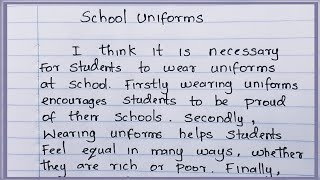 School Uniforms
I think it is necessary
For Students to wear uniforms
at School. Firstly wearing uniforms
encourages students to be proud
of their schools. Secondly,
Wearing unforms helps Students
Feel equal in many ways, whether
they are rich or poor. Finally,